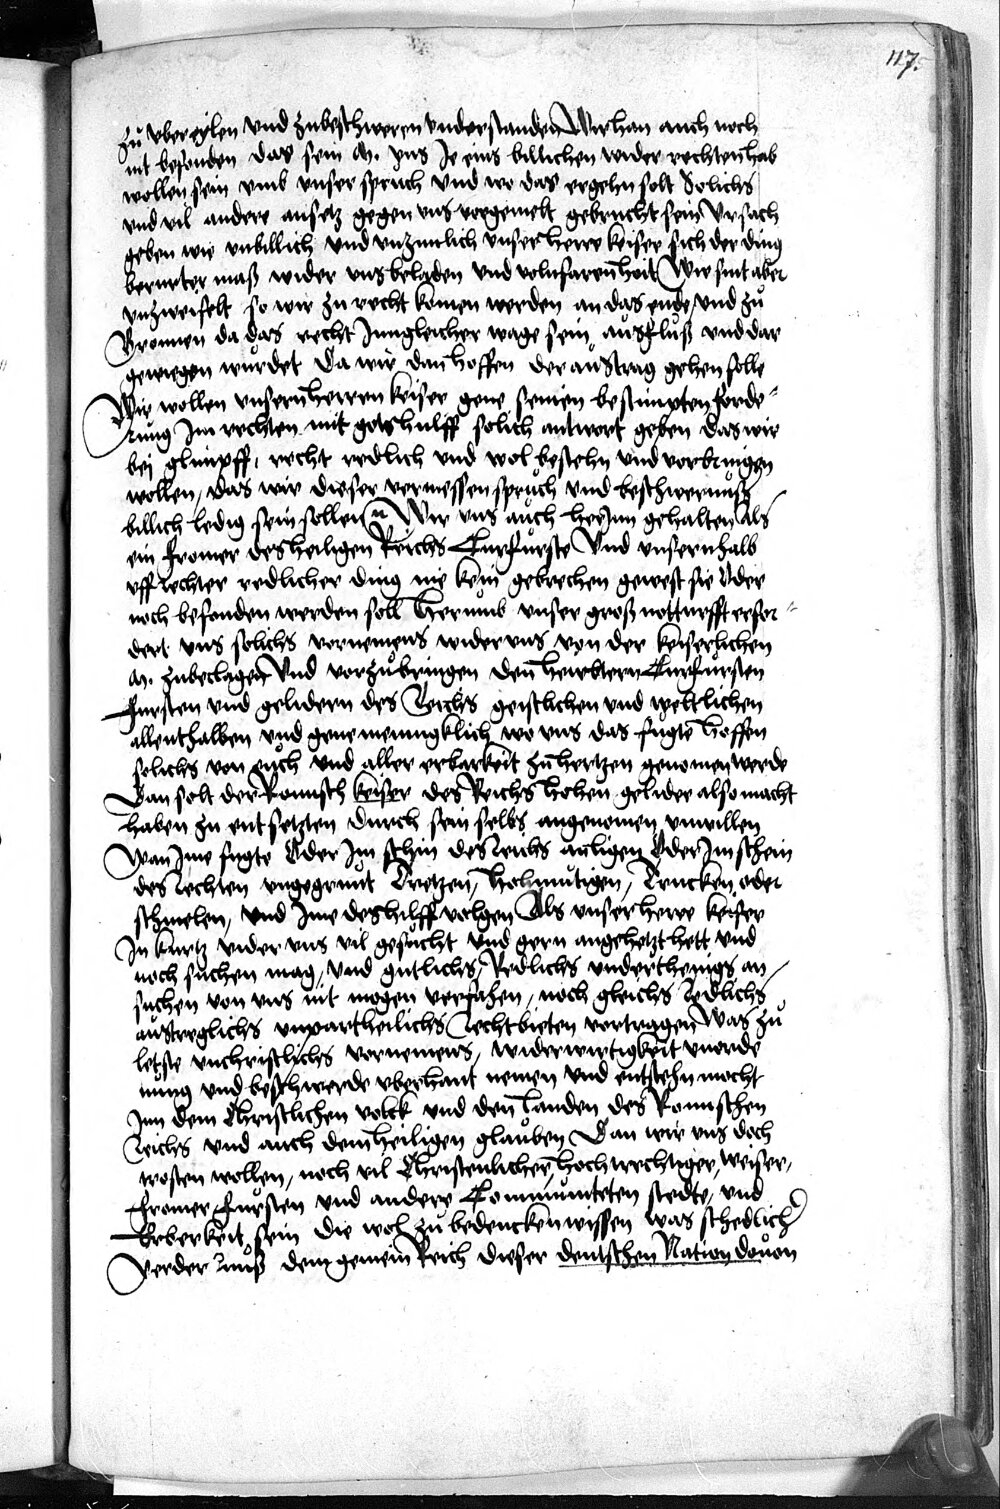 117.
zu vber eylen vnd zubeschweren vnderstanden Wir han auch noch
nit befonden das sein M. vns Je eins billichen wider rechten hab
wollen sein vmb vnser spruch vnd wo das ergehn solt Solichs
vnd vil andere ansetz gegen vns vorgemelt gebrucht sein Vrsach
geben wie vnbillich vnd vnzimlich vnser herre keiser sich der ding
berurter maß wider vns beladen vnd volnfaren hait Wir sint aber
vnzweifelt so wir zu recht komen werden an das ende vnd zu
Bronnen da das recht Jnn gleicher wage sein außfluß vnd dar
gewiegen wurdet Da wir dan hoffen der außtrag gehen solle
Wir wollen vnsern herren keiser gene seinen bestimpten forde-
rung Im rechten mit gots hulff solich antwort geben das wir
bej glimpff, recht redlich vnd wol bestehn vnd vorbringen
wollen, das wir dieser vermessen spruch vnd beschwernuß
billich ledig sein sollen Wir vns auch herjnn gehalten Als
ein fromer des heiligen Reichs Curfurste Vnd vnsernhalb
vff rechter redlicher ding nie kein gebrechen gewest sie Oder
noch befonden werden soll Hermmb vnser groß notturfft erfor-
dert vns solichs vornemens wider vns von der keiserlichen
M. zubeclagen Vnd vorzubringen den Curfursten
Fursten vnd gelidern des Reichs geistlichen vnd weltlichen
allenthalben vnd gene menigklich wo vns das fugte Hoffen
solichs von euch vnd aller erbarkeit zu hertzen genomen werde
Dan solt der Romisch keiser des Reichs hohen gelider also macht
haben zu entsetzten durch sein selbs angenomen vnwillen
Wan Jme fugte Oder Im schin des reichs anligen Oder Im schein
des rechten vngegrunt Tretzen, Hohmutigen, Trucken oder
schmelen, vnd Jme des hilff volgen Als vnser herre keiser
In kurtz wider vns vil gesucht vnd gern angehetzt hett vnd
noch suchen mag, vnd gutlichs, Redlichs vnderthenigs an-
suchen von vns nit mogen verfahen, noch gleichs redlichs
außtreglichs vnpartheilichs Rechtbieten vortragen Was zu
letste vnchristlichs vornemens, widerwirtigkeit vnorde
nung vnd beschwerde vberhant nemen vnd entstehn mocht
Jnn dem Christlichen volck vnd den landen des Romischen
Reichs vnd auch dem heiligen glauben Dan wir vns doch
trosten wollen, noch vil Christenlicher, hochwechtiger, weiser,
fromer Fursten vnd andere Communiteten stedte, vnd
Erberkeit sein die wol zu bedencken wissen was schedlich
verdernuß dem gemein Reich dieser deutschen Nation douon